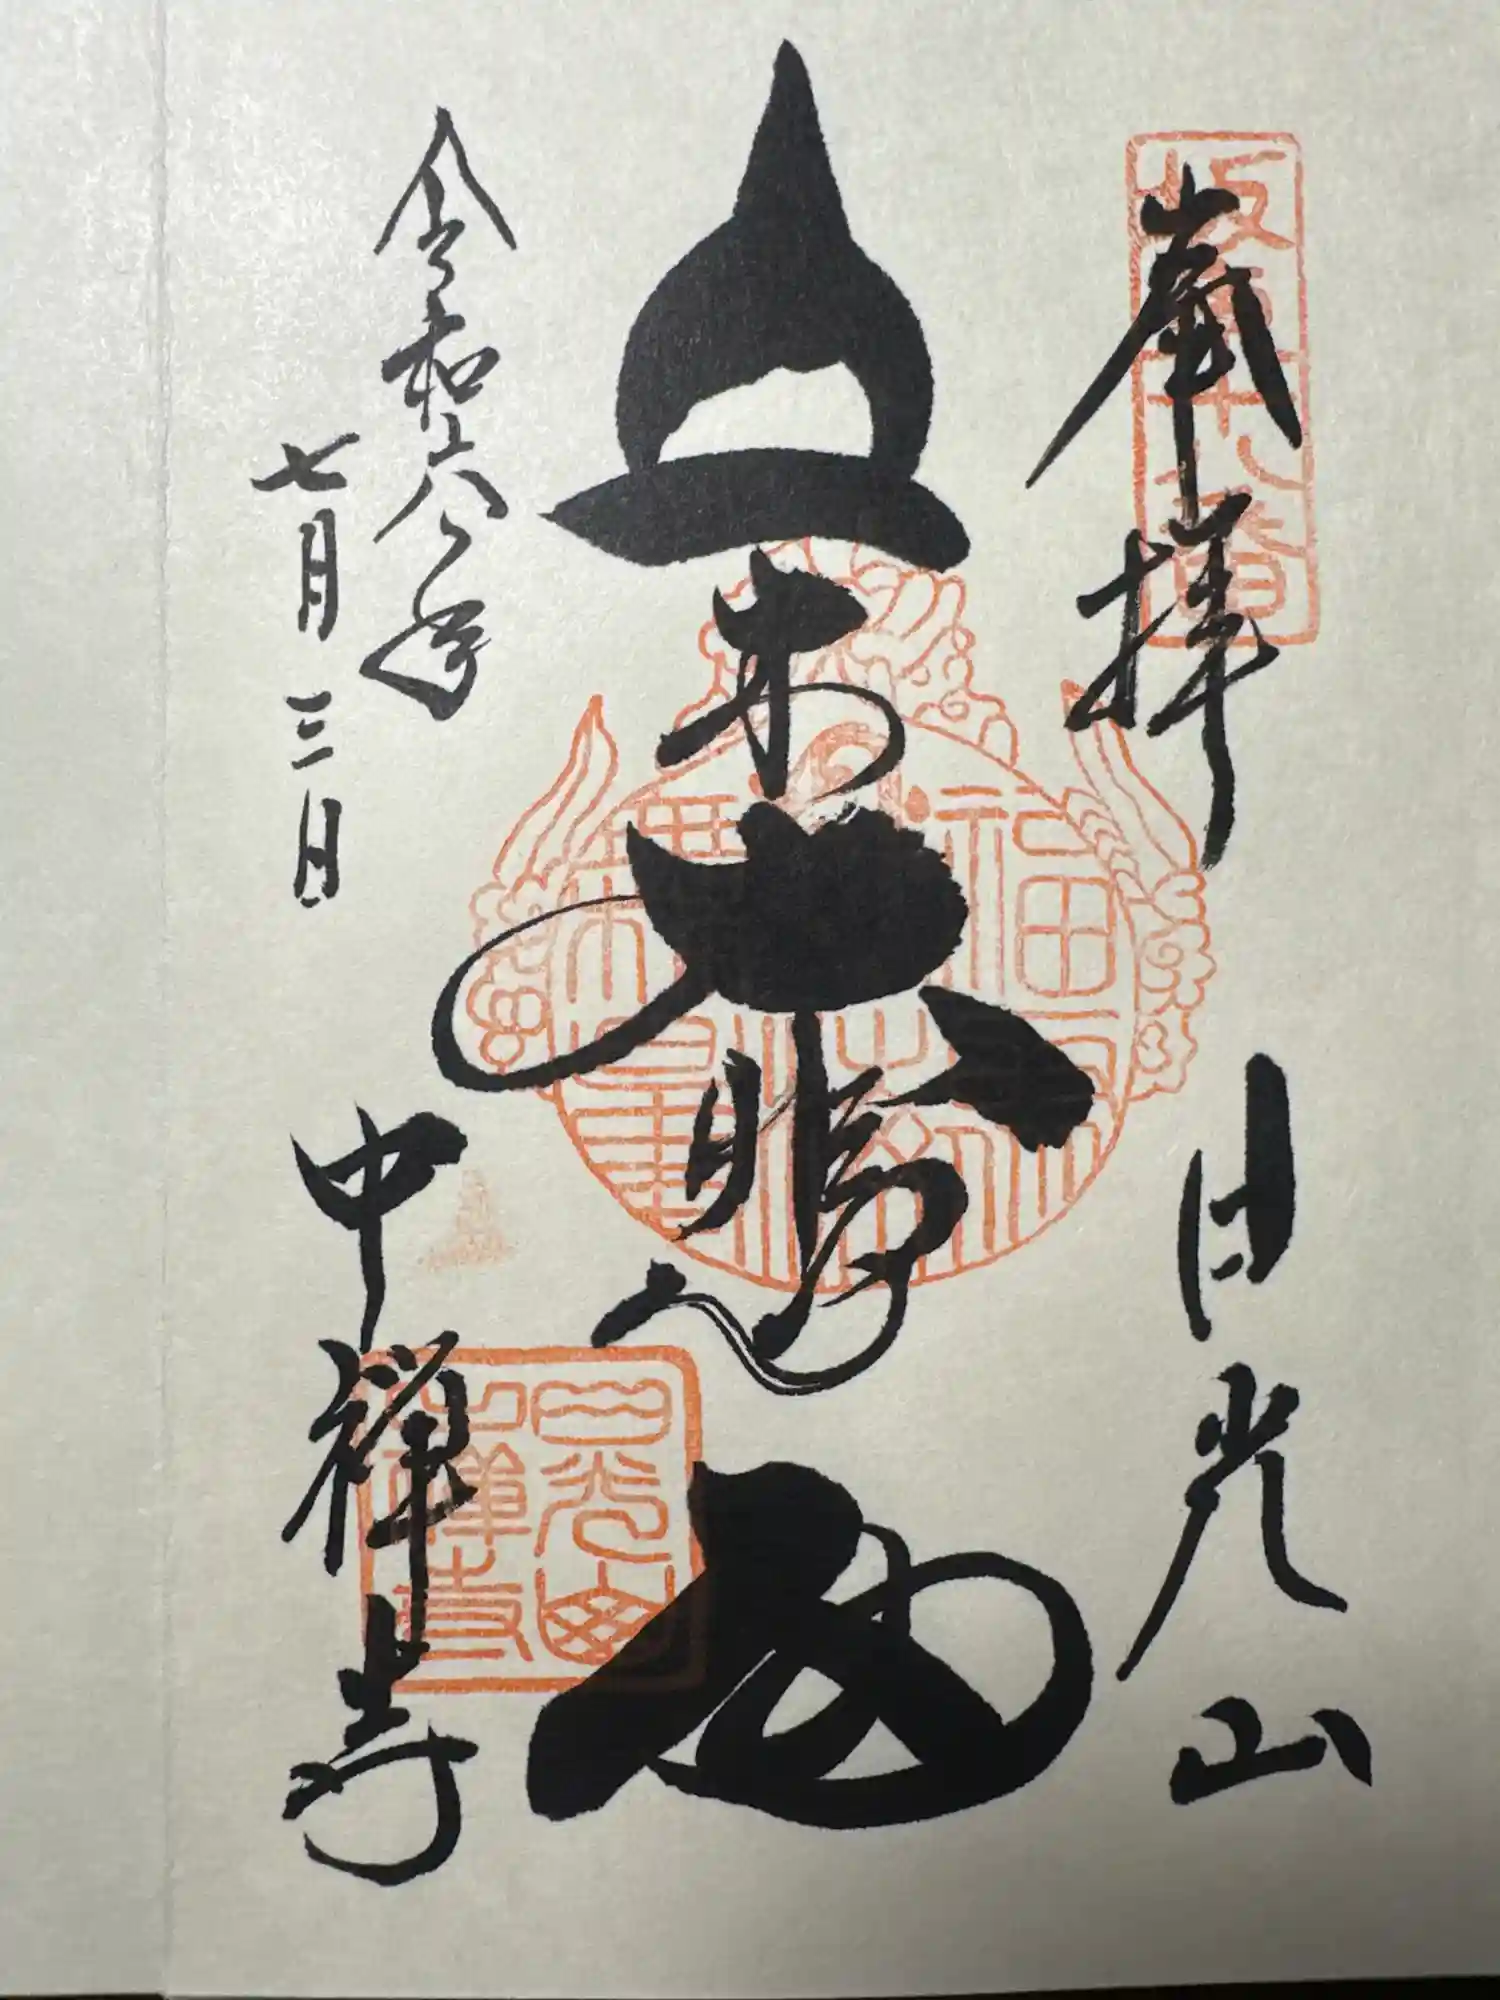 坂東十八番
奉拝
日光山
立木大
福聚海無量
令和六年
七月三日
中禅寺
日光山
中禅寺